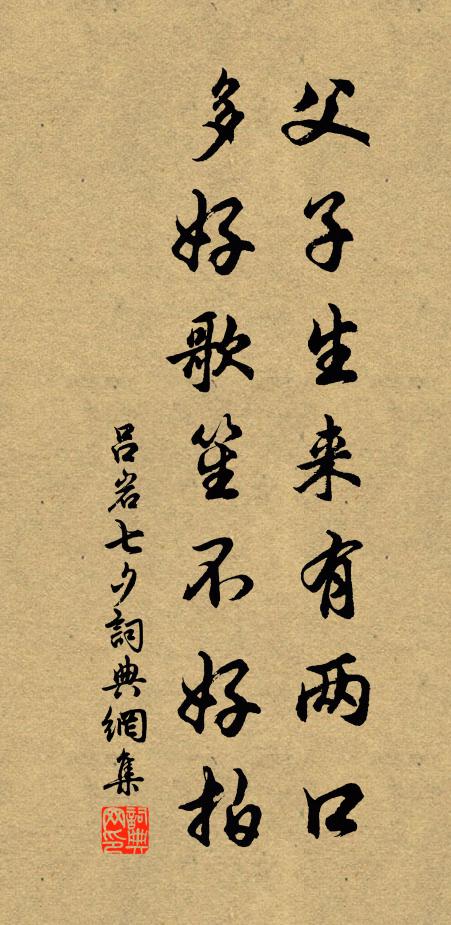 父子生来有两口
多好歌笙不好拍
吕岩七夕詞典網集
詞典网印